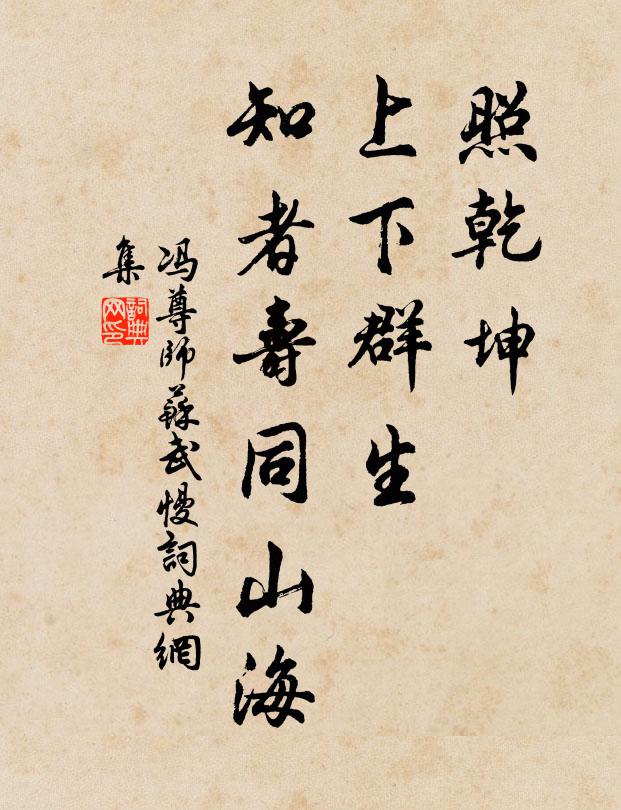 照乾坤
上下群生
知者壽同山海
冯尊師蘇武慢詞典網
集
詞典网印